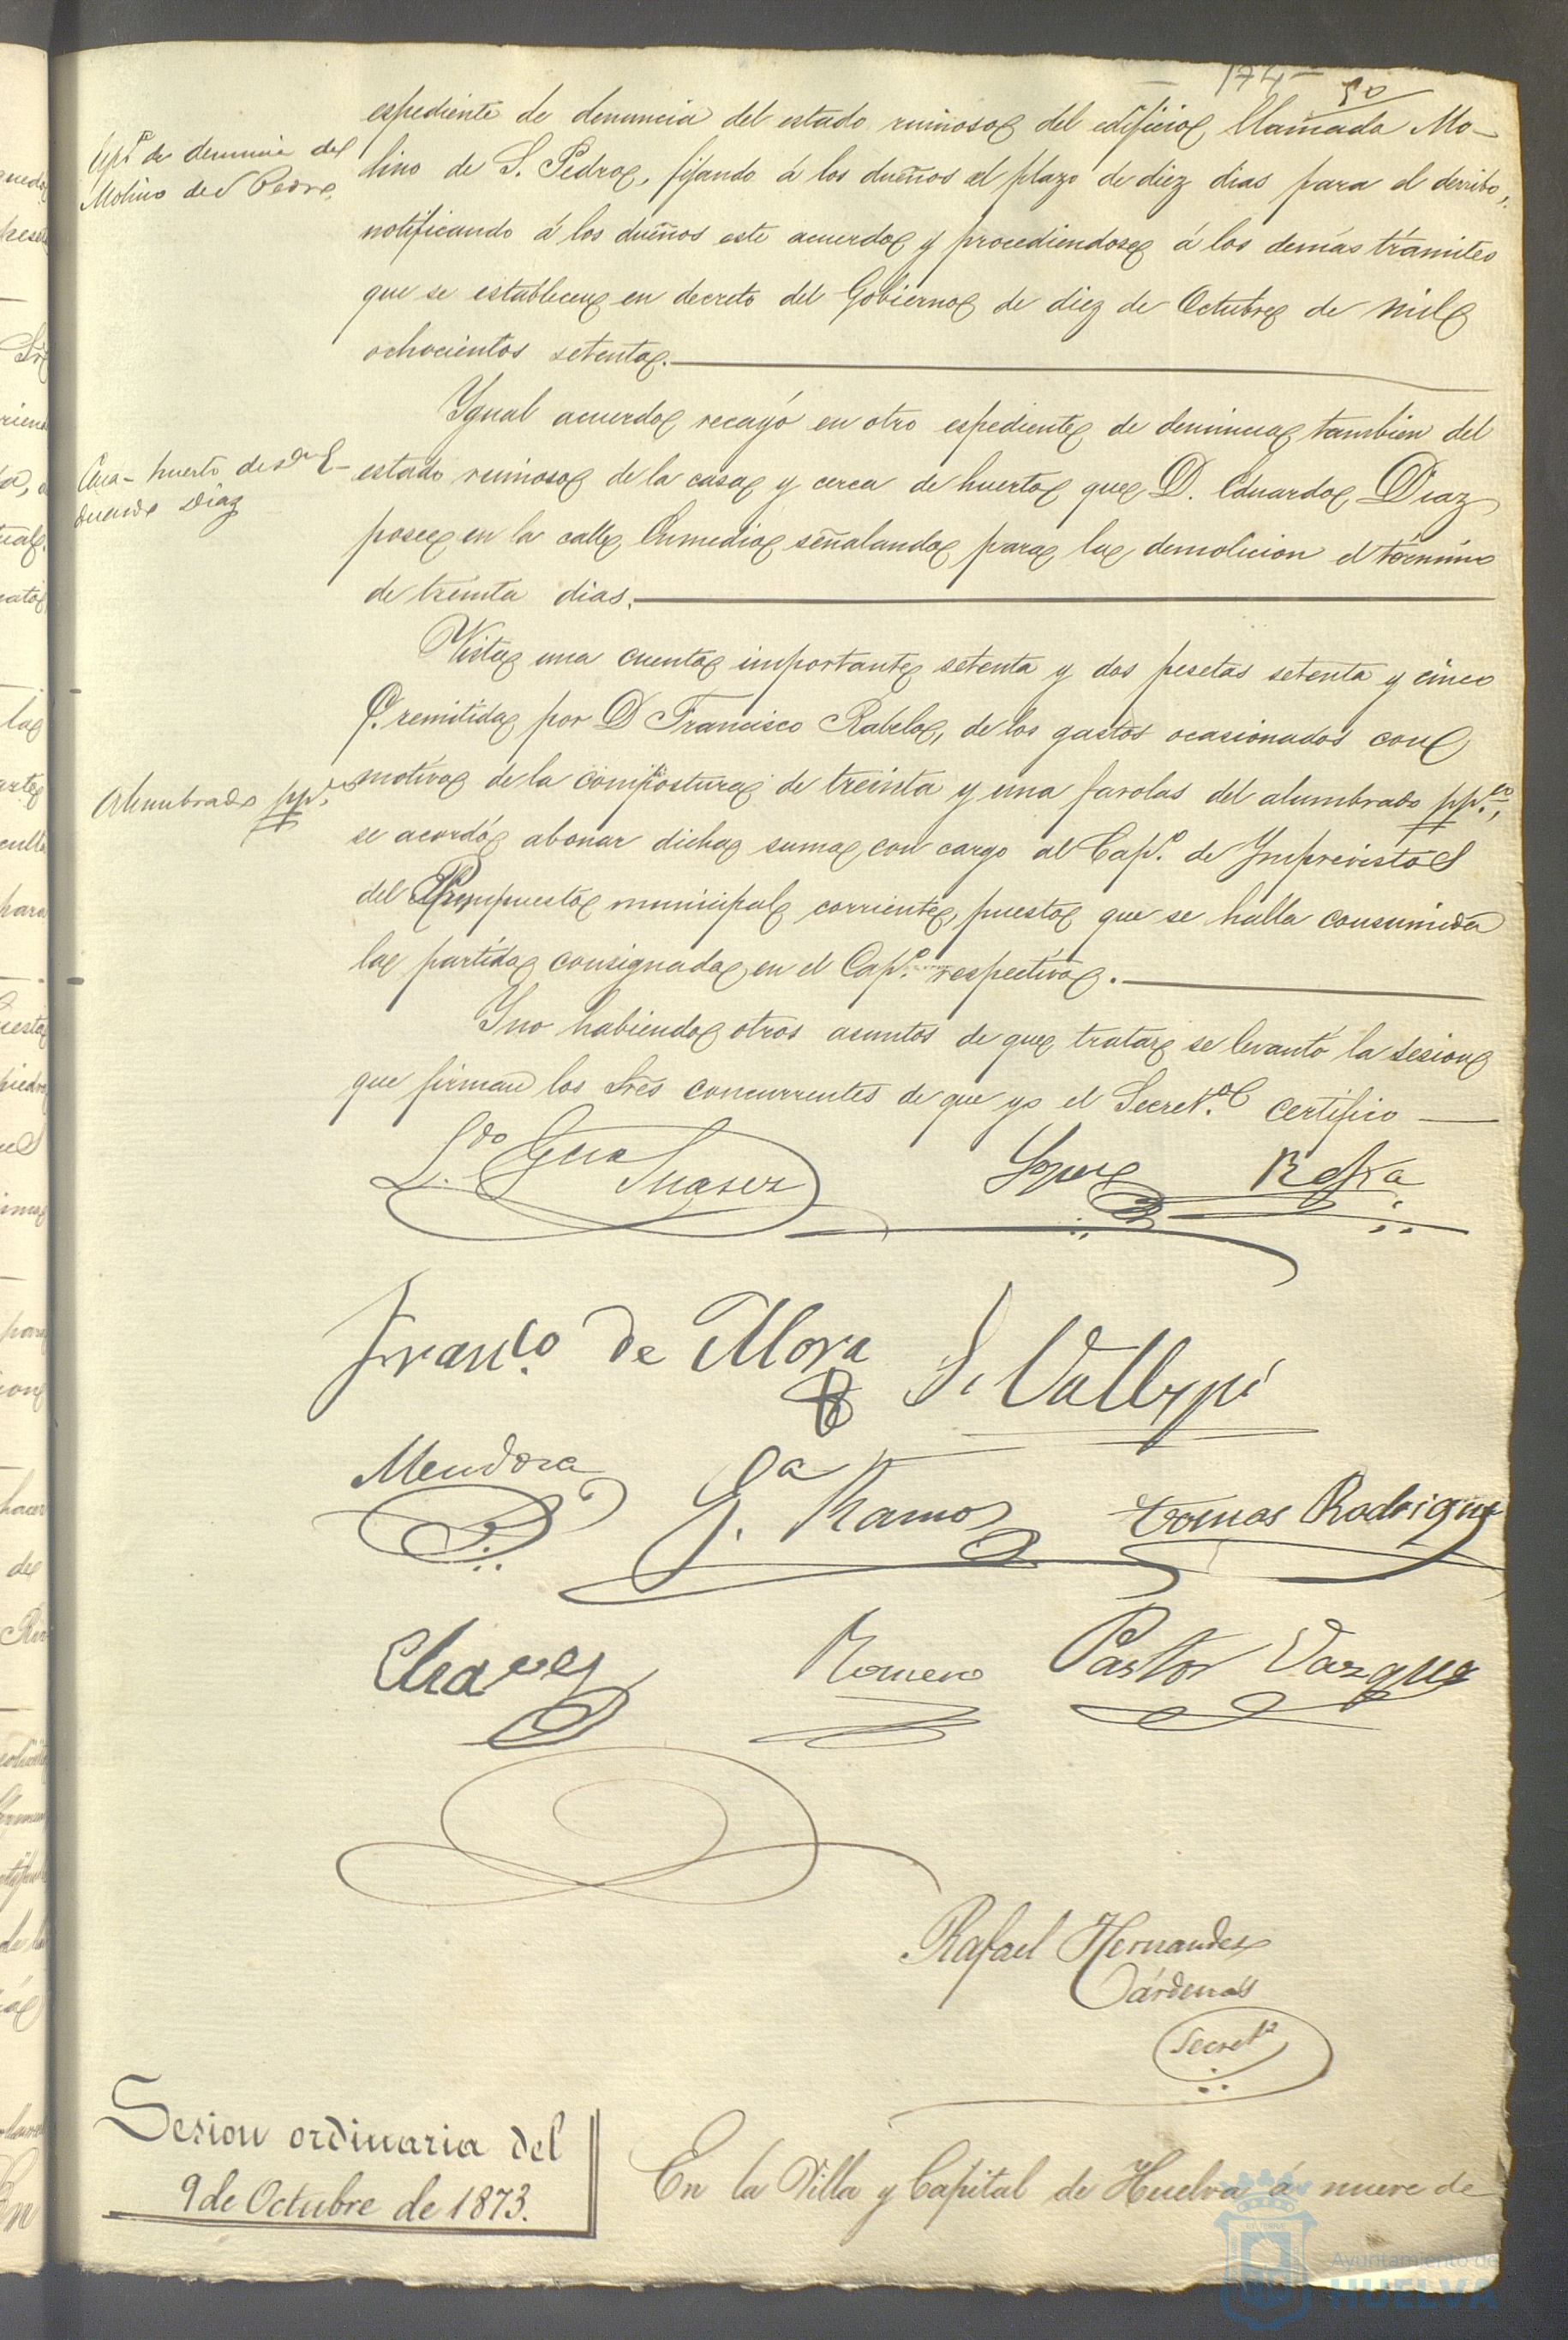 174
90
espediente de denuncia del estado ruinoso del edificio llamado Mo-
lino de S. Pedro, fijando á los dueños el plazo de diez dias para el derribo,
notificando á los dueños este acuerdo y procediendose á los demás trámites
que se establecen en decreto del Gobierno de diez de Octubre de mil
ochocientos setenta.
Expte de denuncia del
Molino de S Pedro
Ygual acuerdo recayó en otro espediente de denuncia tambien del
estado ruinoso de la casa y cerca de huerto que D. Eduardo Diaz
posee en la calle Enmedio señalando para la demolicion el término
de treinta dias.
Casa-huerto de Dn E-
duardo Diaz
Vista una cuenta importante setenta y dos pesetas setenta y cinco
C. remitida por D Francisco Rabelo, de los gastos ocasionados con
motivo de la compostura de treinta y una farolas del alumbrado ppco,
se acordó abonar dicha suma con cargo al Capo. de Ymprevistos
del Presupuesto municipal corriente, puesto que se halla consumida
la partida consignada en el Capo. respectivo.
Alumbrado ppco
Y no habiendo otros asuntos de que tratar se levantó la sesion
que firman los Sres concurrentes de que yo el Secreto. certifico
Ldo Gcia Suarez
Lopez
Franco. de Mora
Mendoza
G.a Ramos
Tomas Rodrigue
Chaves
Romero
Pastor
Vazquez
Rafael Hernandez
Cárdenas
Secreto
Sesion ordinaria del
9 de Octubre de 1873.
En la Villa y Capital de Huelva á nueve de
Ayuntamiento de
HUELVA